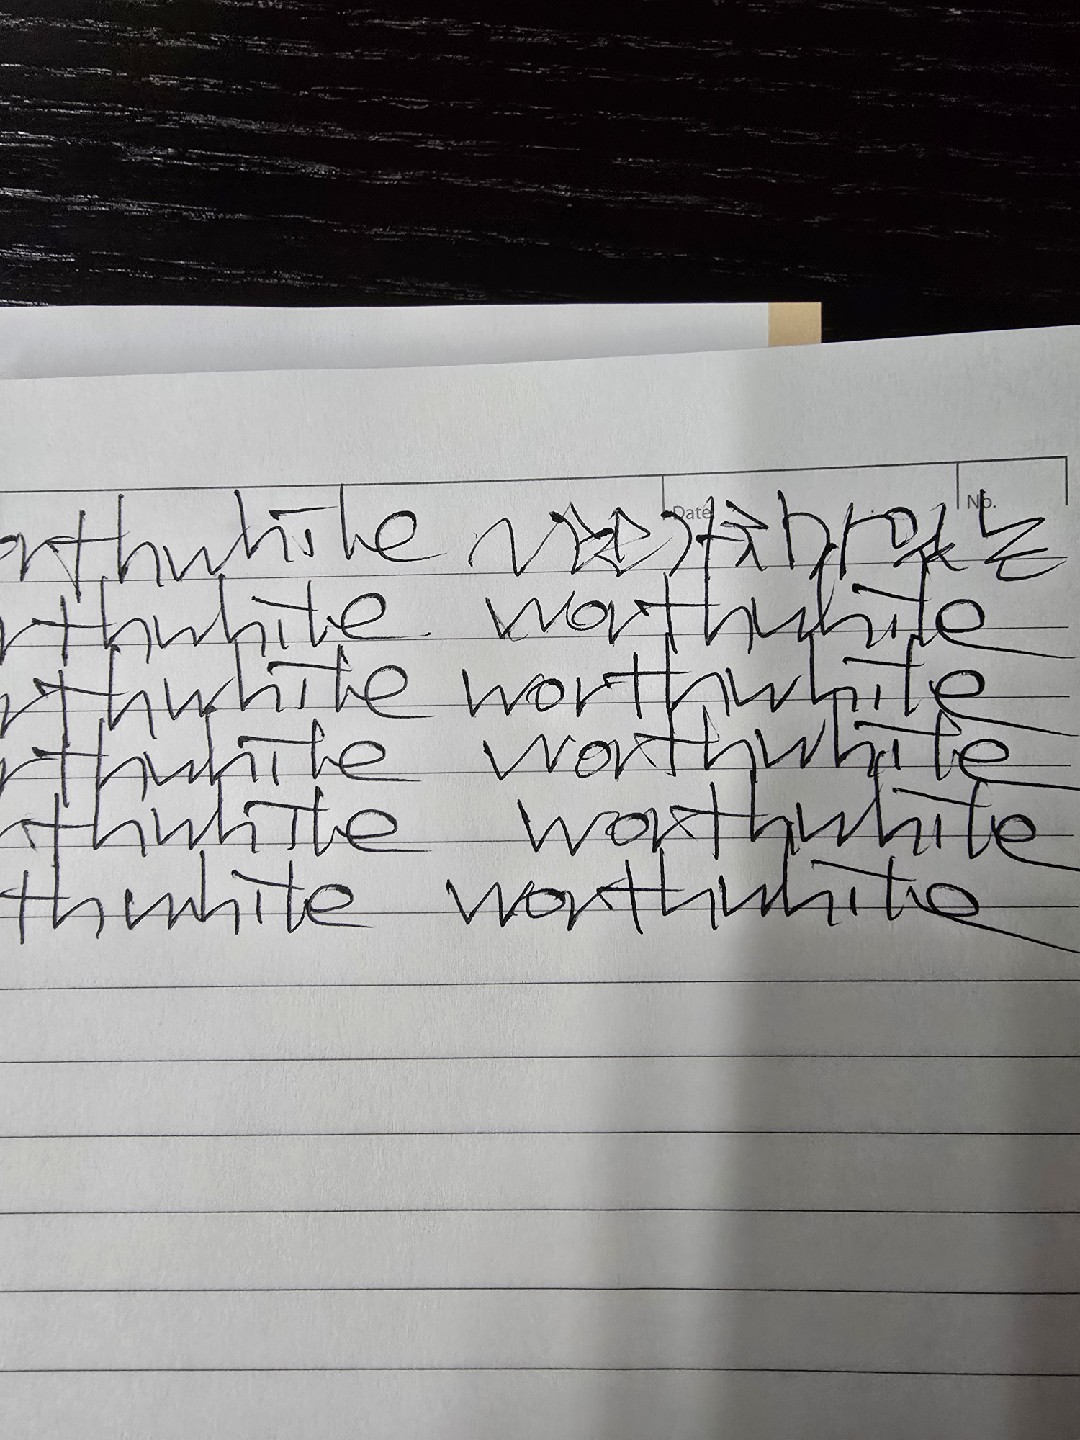 Date No.
orthwhile
rthwhile. worthwhile
rthwhile worthwhile
rthwhile worthwhile
rthwhile worthwhile
thwhile worthwhile